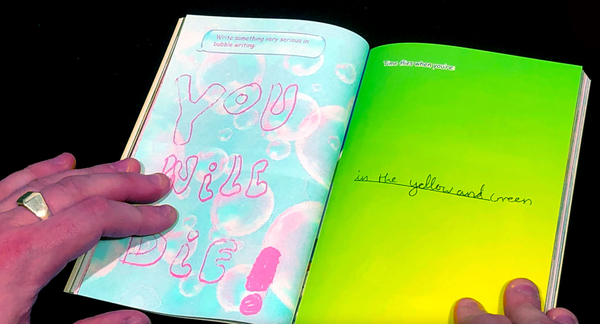 Write something very serious in
bubble writing
YOU
WiLL
DiE!
Time flies when you're:
in the yellow and Green